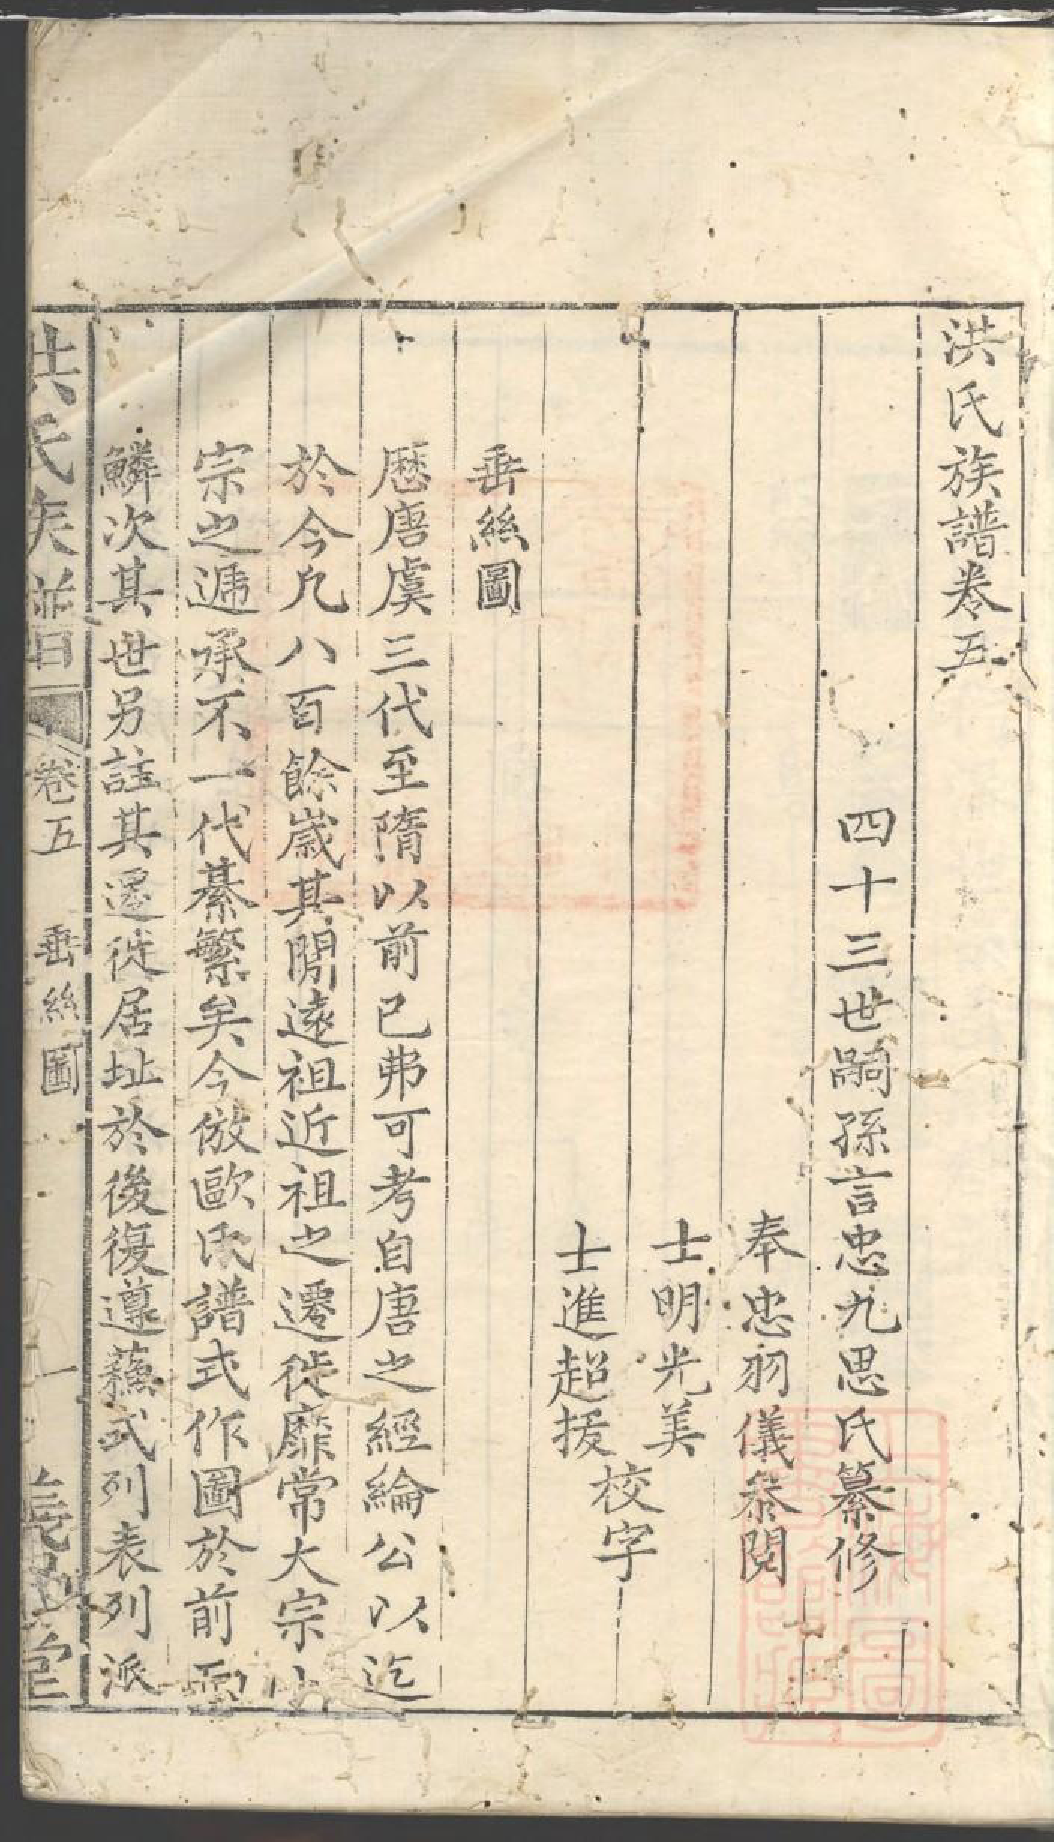 洪氏族譜卷五
四十三世嗣孫言忠九思氏纂修
奉忠羽儀叅閱
士明光美
士進超拔
校字
垂絲圖
歷唐虞三代至隋以前已弗可考自唐之經綸公以迄
於今凡八百餘歲其間遠祖近祖之遷徙靡常大宗小
宗之遞承不一代綦繁矣今倣歐氏譜式作圖於前
鱗次其世另註其遷徙居址於後復遵蘇式列表列派
洪氏族譜
卷五
垂絲圖
一
堂